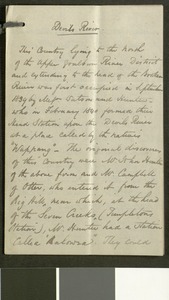 Devils River
This Country lying to the north
of the Upper Goulburn River District
and extending to the head of the Broken
River was first occupied in September
1839 by Messrs Watson and Hunter
who in February 1840 formed their
head Station upon the Devils River
at a place called by the natives
"Wappang". The original discoverers
of this Country were Mr John Hunter
of the above firm and Mr Campbell
of Otter, who entered it from the
Big Hill, near which, at the head
of the Seven Creeks, (Templeton's
Station), Mr Hunter had a Station
Called . They could